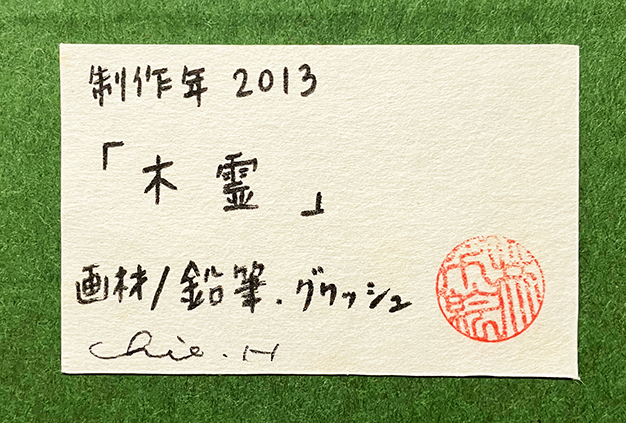 制作年 2013
「木霊」
画材/鉛筆.グワッシュ
Chie.H